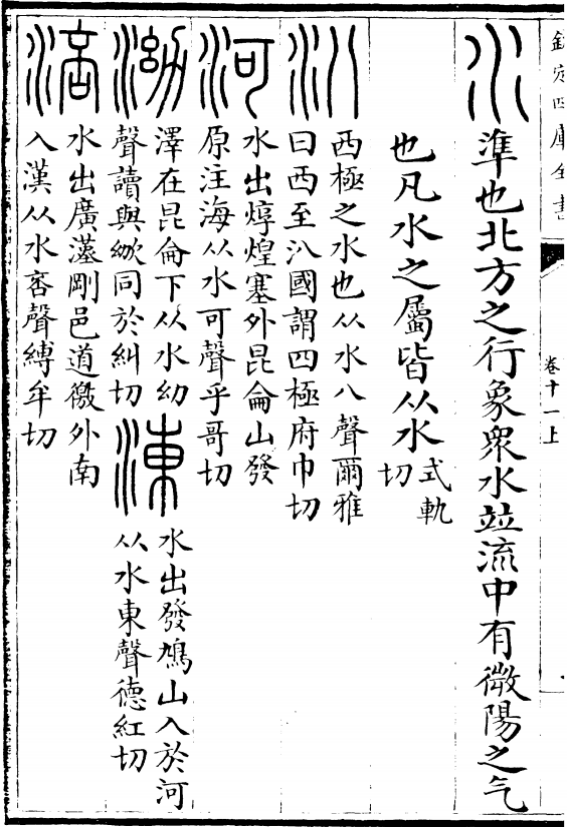 欽定四庫全書
卷十一上
水 準也北方之行象衆水竝流中有微陽之气
也凡水之屬皆从水式軌切
汃 西極之水也从水八聲爾雅
曰西至汃國謂四極府巾切
河 水出焞煌塞外昆侖山發
原注海从水可聲乎哥切
泑 澤在昆侖下从水幼
聲讀與同於糾切
涷 水出發鳩山入於河
从水東聲德紅切
涪 水出廣剛邑道徼外南
入漢从水咅聲縛牟切